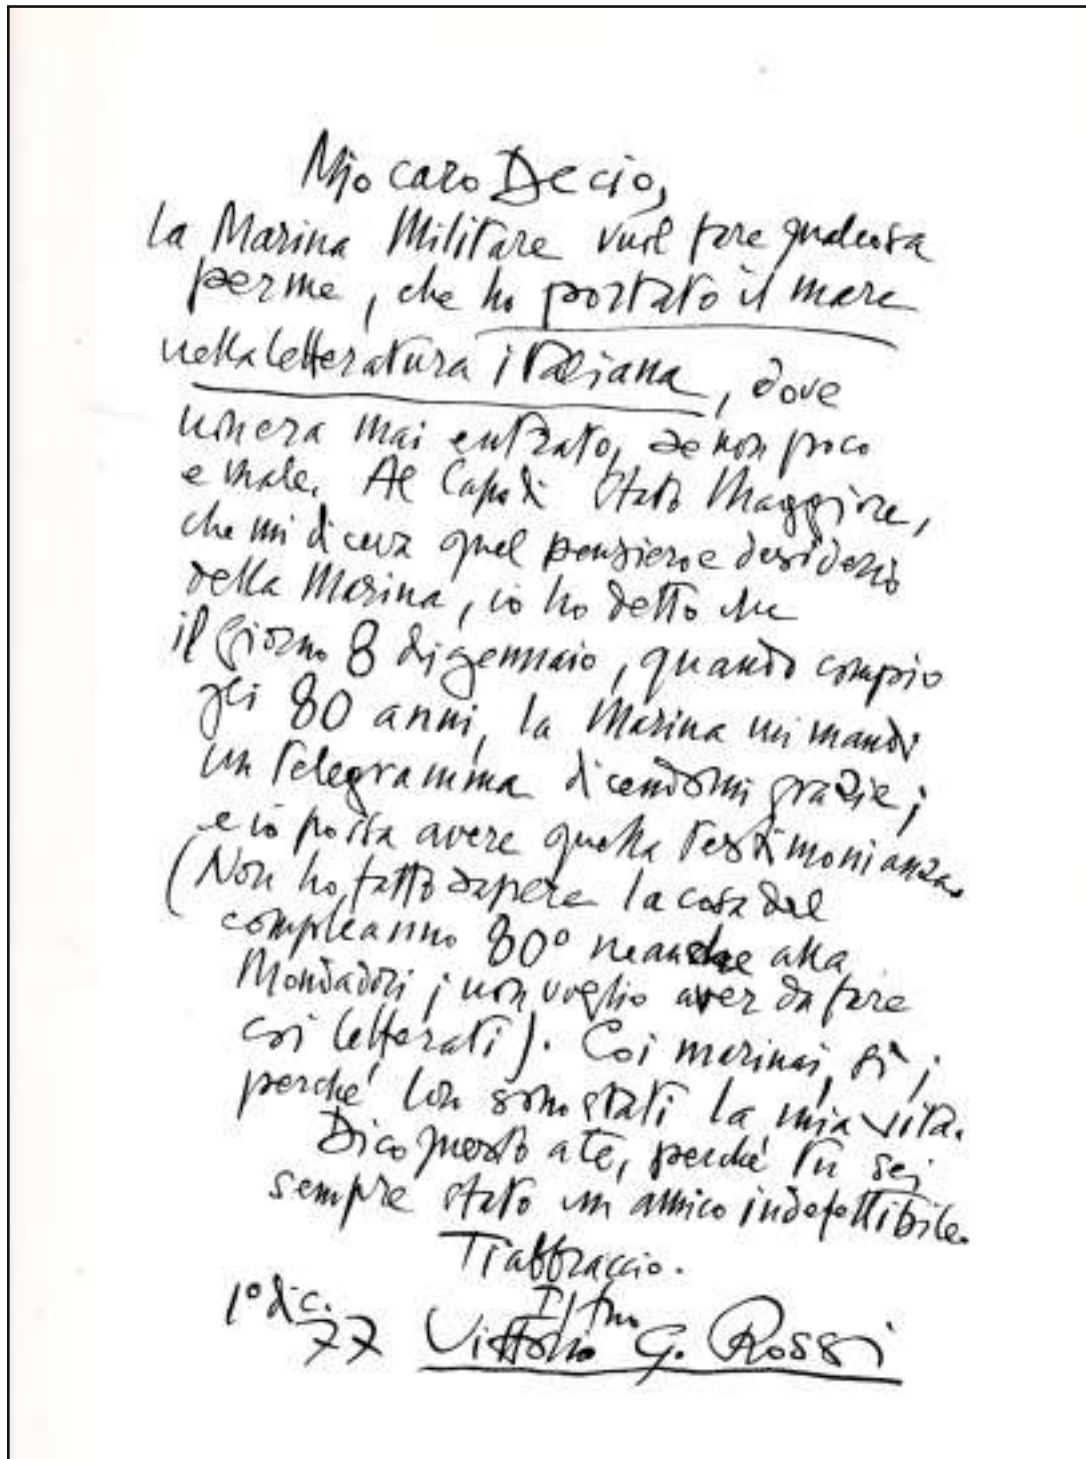 Mio caro Decio,
la Marina Militare vuol fare qualcosa
per me, che ho portato il mare
nella letteratura italiana, dove
non era mai entrato, se non poco
e male. Al Capo di Stato Maggiore,
che mi diceva quel pensiero e desiderio
della Marina, io ho detto che
il giorno 8 di gennaio, quando compio
gli 80 anni, la Marina mi mandi
un telegramma dicendomi grazie;
e io possa avere quella testimonianza.
(Non ho fatto sapere la cosa del
compleanno 80° neanche alla
Mondadori; non voglio aver da fare
coi letterati). Coi marinai, sì;
perché loro sono stati la mia vita.
Dico questo a te, perché tu sei
sempre stato un amico indefettibile.
Ti abbraccio.
Il tuo
1° dic. 77 Vittorio G. Rossi